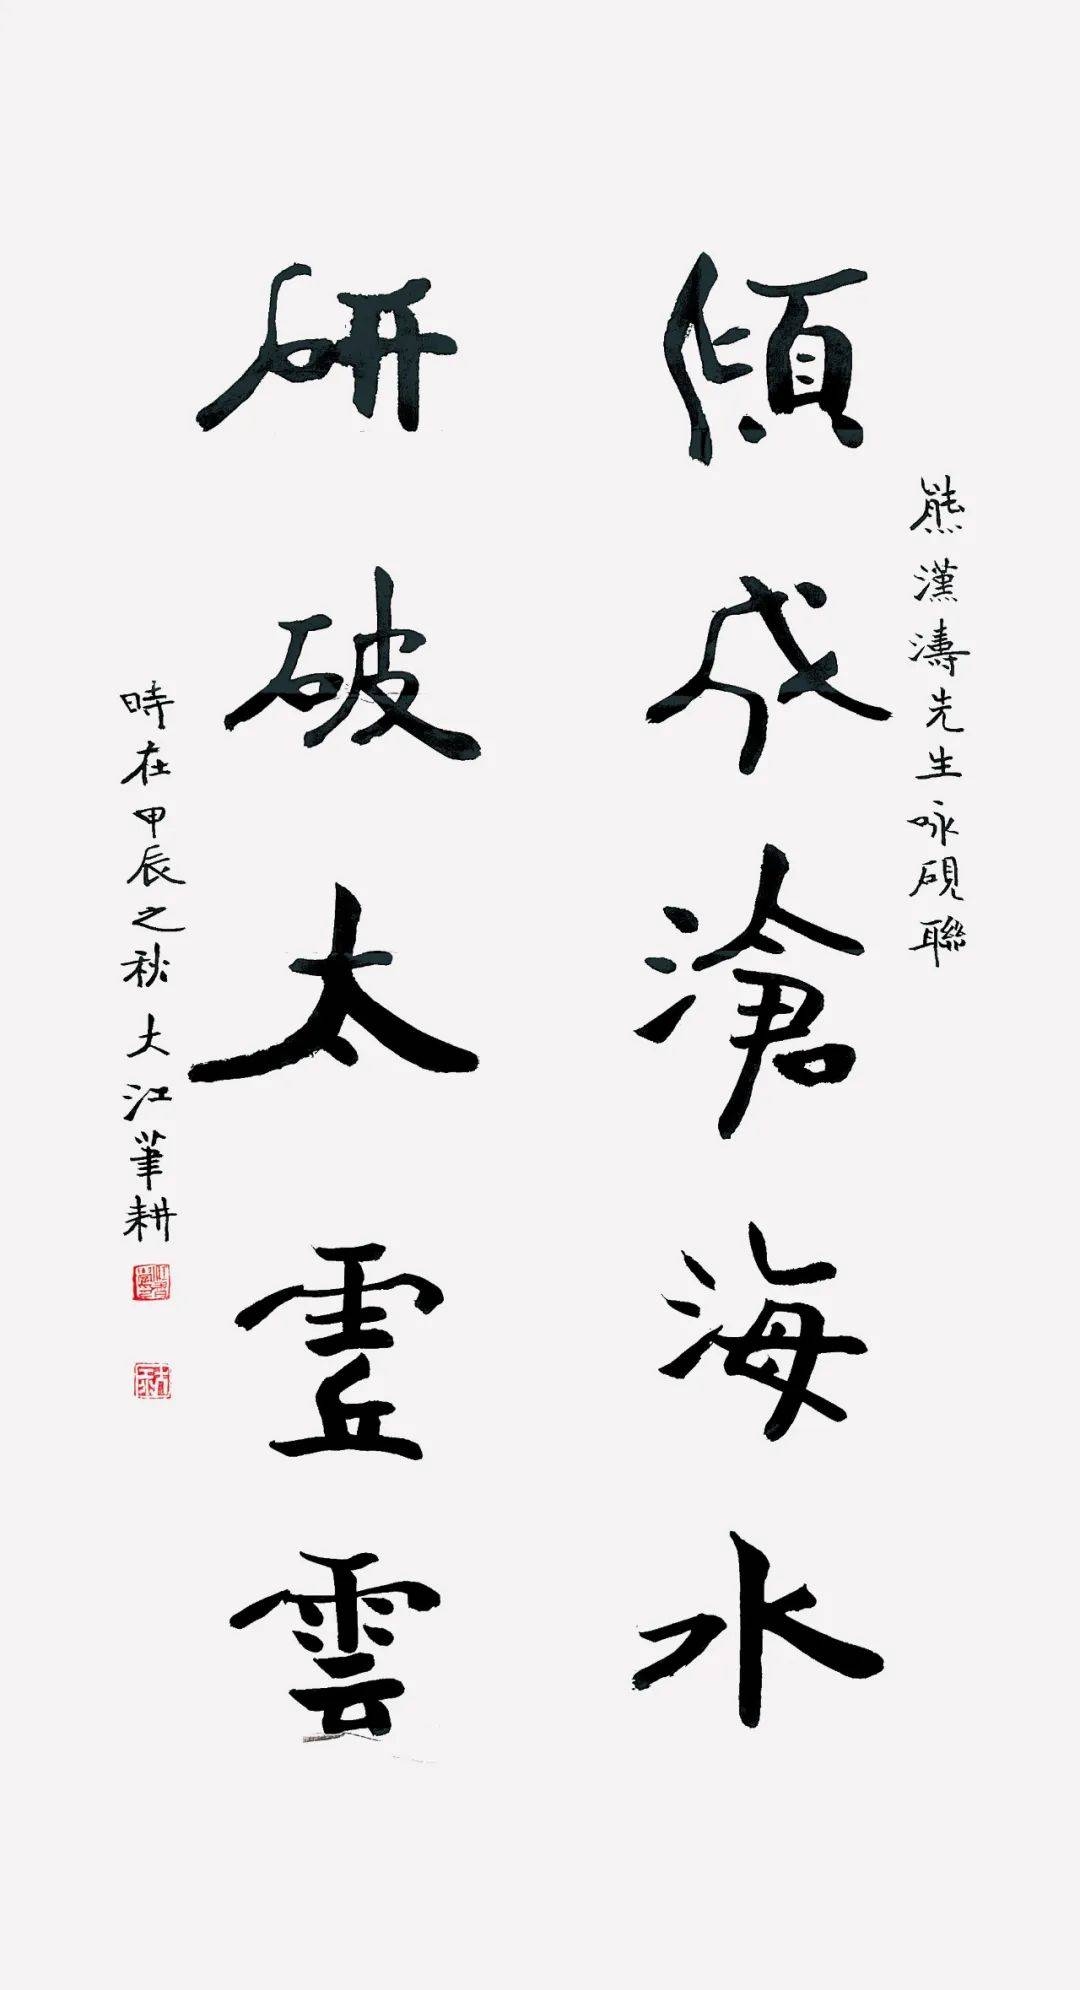 熊漢濤先生咏硯聯
傾成滄海水
研破太虛雲
時在甲辰之秋大江筆耕